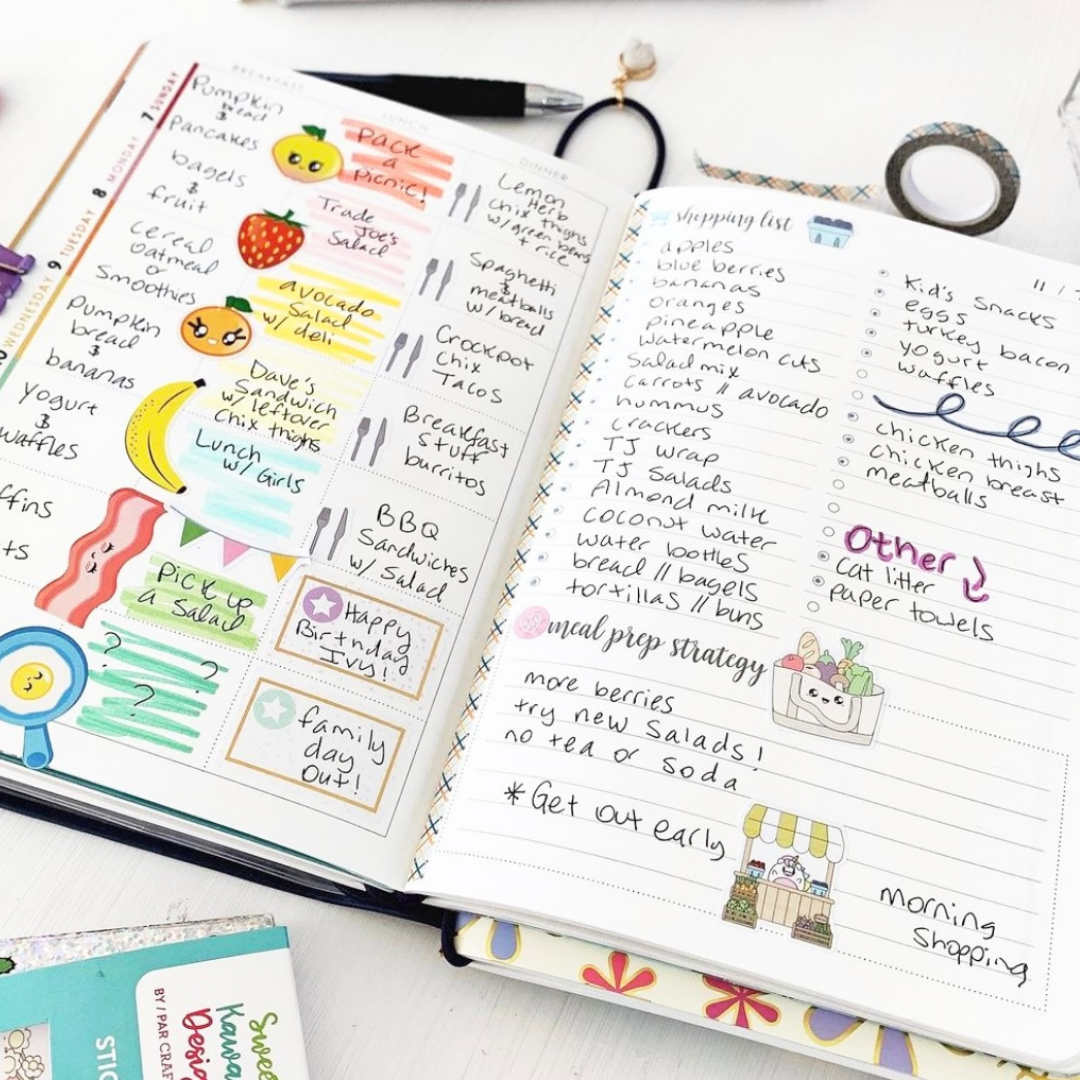 7 SUNDAY
8 MONDAY
9 TUESDAY
WEDNESDAY
BREAKFAST
Pumpkin
bread
&
Pancakes
bagels
&
fruit
cereal
oatmeal
or
Smoothies
Pumpkin
bread
&
bananas
yogurt
&
waffles
LUNCH
PACK
a
Picnic!
Trade
Joe's
Salad
avocado
Salad
w/ deli
Dave's
Sandwich
w/ leftover
Chix thighs
Lunch
w/ Girls
Pick up
a Salad
?
?
?
DINNER
Lemon
Herb
Chix thighs
w/ green beans
+ rice
Spaghetti
&
meatballs
w/ bread
Crockpot
Chix
Tacos
Breakfast
Stuff
burritos
BBQ
Sandwiches
w/ Salad
Happy
Birthday
Ivy!
family
day
out!
shopping list
apples
blue berries
bananas
oranges
pineapple
watermelon cuts
Salad mix
carrots // avocado
hummus
crackers
TJ wrap
TJ Salads
Almond milk
coconut water
water bottles
bread // bagels
tortillas // buns
11 /
Kid's Snacks
eggs
turkey bacon
yogurt
waffles
chicken thighs
chicken breast
meatballs
Other
cat litter
paper towels
meal prep strategy
more berries
try new Salads!
no tea or soda
* Get out early
morning
Shopping
BY / PAR CRAF